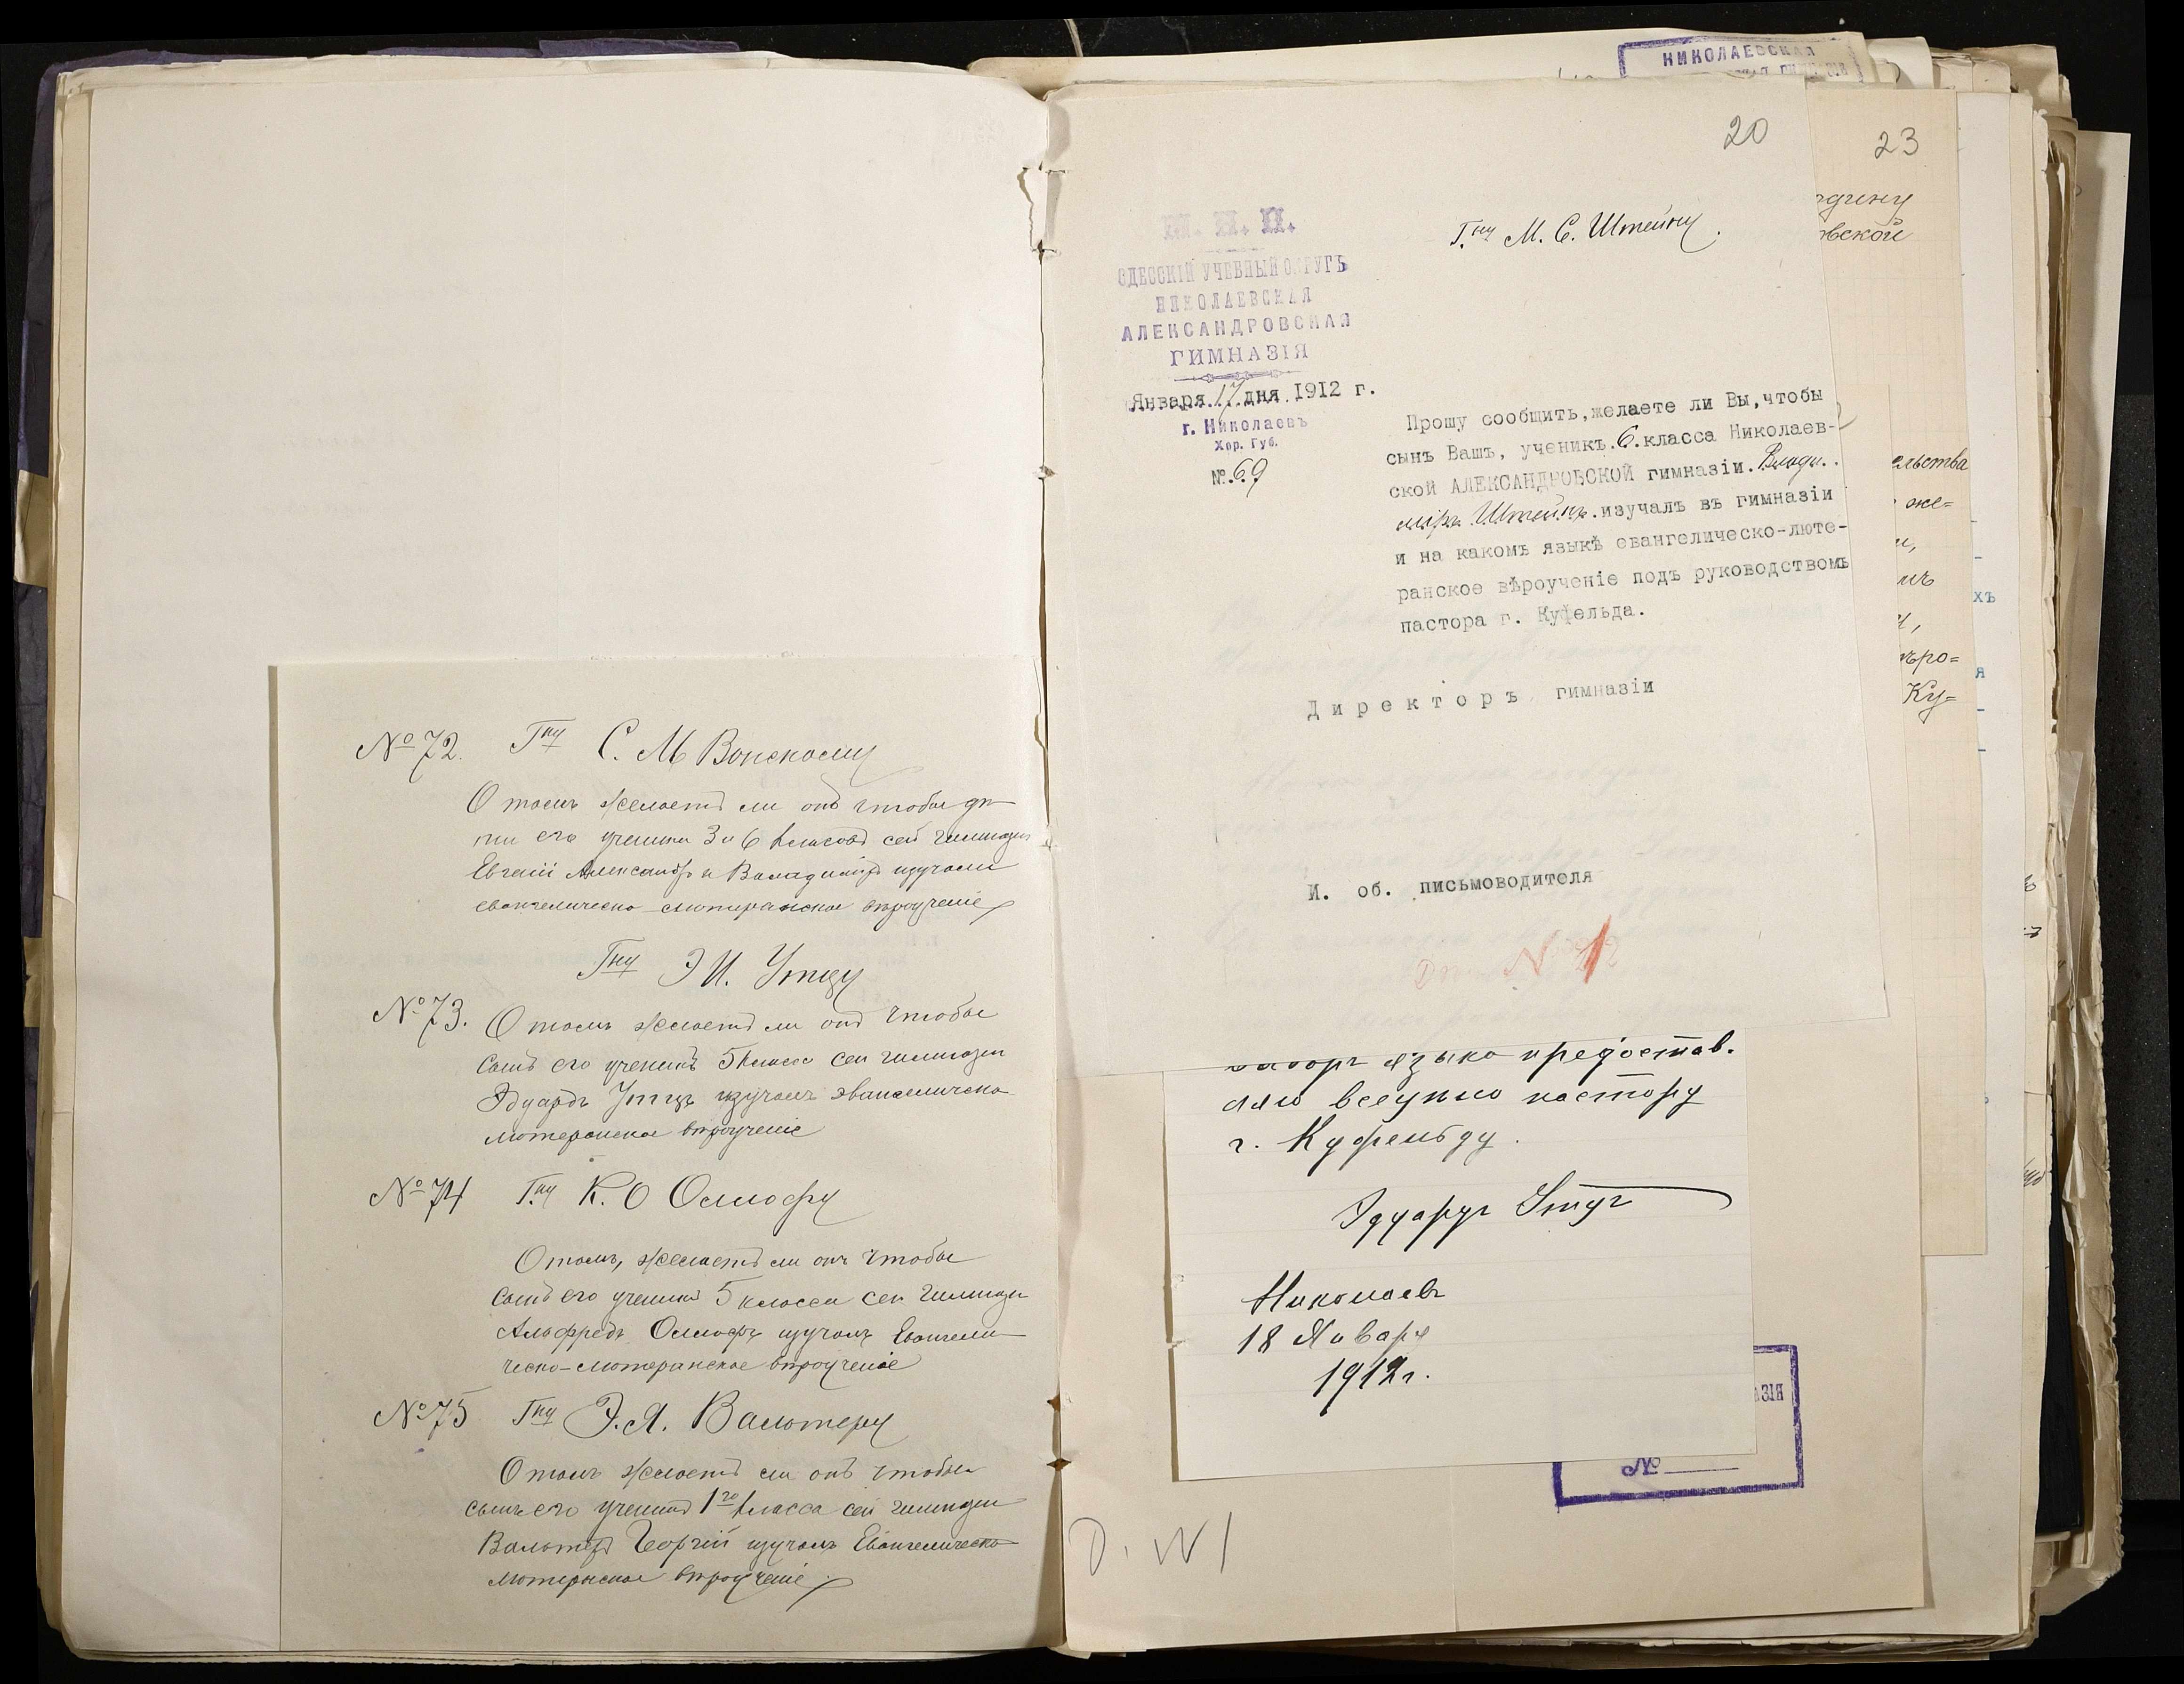 № 72. Гну С. М Вонскому
О томъ желаетъ ли онъ чтобы дѣ-
ти его ученики 3 и 6 классовъ сей гимназiи
Евгенiй Александръ и Владимiръ изучали
евангелическо-лютеранское вѣроученiе
Гну Э И. Утцу
№ 73. О томъ желаетъ ли онъ чтобы
сынъ его ученикъ 5 класса сей гимназiи
Эдуардъ Утцъ изучалъ эвангелическо-
лютеранское вѣроученiе
№ 74 Гну К. О Оллофу
О томъ, желаетъ ли онъ чтобы
сынъ его ученикъ 5 класса сей гимназiи
Альфредъ Оллофъ изучалъ Евангели-
ческо-лютеранское вѣроученiе
№ 75 Гну Э. Я. Вальтеру
О томъ желаетъ ли онъ чтобы
сынъ его ученикъ 1го класса сей гимназiи
Вальтеръ Георгiй изучалъ Евангелическо
лютернское вѣроученiе
НИКОЛАЕВСКАЯ
20
23
Г.ну М. С. Штейну.
М. Н. П.
ОДЕССКIЙ УЧЕБНЫЙ ОКРУГЪ
НИКОЛАЕВСКАЯ
АЛЕКСАНДРОВСКАЯ
ГИМНАЗIЯ
Января 17 дня 1912 г.
г. Николаевъ
Хер. Губ.
№. 69
Прошу сообщить, желаете ли Вы, чтобы
сынъ Вашъ, ученикъ. 6. класса Николаев-
ской АЛЕКСАНДРОВСКОЙ гимназiи. Влади..
мiръ Штейнъ. изучалъ въ гимназiи
и на какомъ языкѣ евангелическо-люте-
ранское вѣроученiе подъ руководствомъ
пастора г. Куфельда.
Директоръ гимназiи
И. об. письмоводителя
ельства
же=
Ку=
выборъ языка предостав.
ляю всецѣло пастору
г. Куфельду.
Эдуардъ Утцъ
Николаевъ
18 Января
1912 г.
№
D. N 1